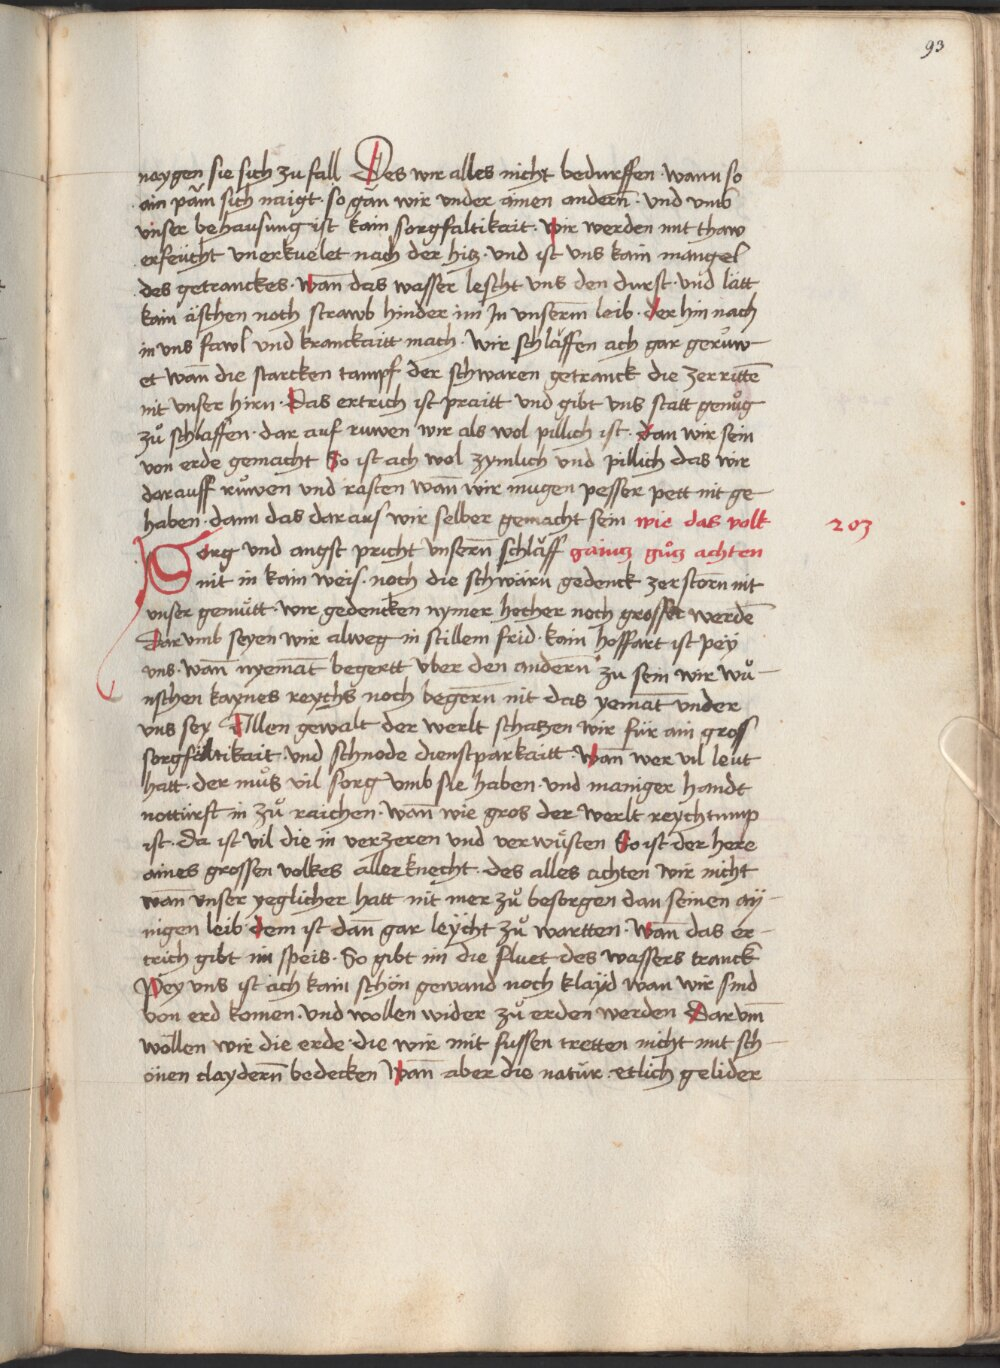 93
naygen sie sich zu fall Des wir alles nicht bedurffen · wann so
ain pām sich naigt · so gān wir vnder ainen andern̄ · vnd vmb
vnser behausung ist kain sorgfaltikait · wir werden mit thaw
erfeücht vnerkuelet nach der hitz · vnd ist vns kain mangel
des getranckes · wan̄ das wasser lescht vns den durst · vnd lätt
kain äschen noch strawb hinder im In vnserm̄ leib · der hin nach
in vns fawl vnd kranckaitt mach · wir schlaͤffen ach gar geruͦw–
et wan̄ die starcken tampf der schwaren getranck die zerritte̅
nit vnser hirn · Das ertrich ist praitt vnd gibt vns statt genuͦg
zuͦ schlaffen · dar auf ruwen wir als wol pillich ist · dan wir sein
von erde gemacht So ist ach wol zymlich vnd pillich das wir
darauff ruͦwen vnd rasten wan̄ wir mugen pesser pett nit ge–
haben · dann das dar aus wir selber gemacht sein wie das volk
203
Sorg vnd angst pricht vnsern̄ schlaͤff gaintz guͦtz achten
nüt in kain weis · noch die schwärn gedenck zerstorn nit
vnser gemuͤtt · wir gedencken nymer hocher noch grosser werde̅
Darvmb seyen wir alweg in stillem frid · kain hoffart ist peÿ
vns · wan̄ nyeman̄t begertt vber den andern̄ zu sein wir wuͤ–
nschen kaynes reychs noch begern̄ nit das yeman̄t vnder
vns sey Allen gewalt der werlt schatzen wir für ain gross
sorgfältikait · vnd schnode dienstparkaitt · wan̄ wer vil leut
hatt · der muͦs vil sorg vmb sie haben · vnd maniger handt
nottürft in zuͦ raichen · wan̄ wie gros der werlt reychtump
ist · da ist vil die in verzeren vnd verwuͤsten So ist der here
aines grossen volkes aller knecht · des alles achten wir nicht
wan̄ vnser yeglicher hatt nit mer zuͦ besorgen dan seinen aÿ–
nigen leib · dem ist dan̄ gar leÿcht zuͦ wartten · Wan̄ das er–
trich gibt im speis · So gibt im die fluet des wassers tranck
Pey vns ist ach kain schön gewand noch klaÿd wan wir sind
von erd komen · vnd wollen wider zuͦ erden werden Darvm̄
wöllen wir die erde · die wir mit fussen tretten nicht mit sch–
önen claydern̄ bedecken Wan̄ aber die natür · etlich gelider